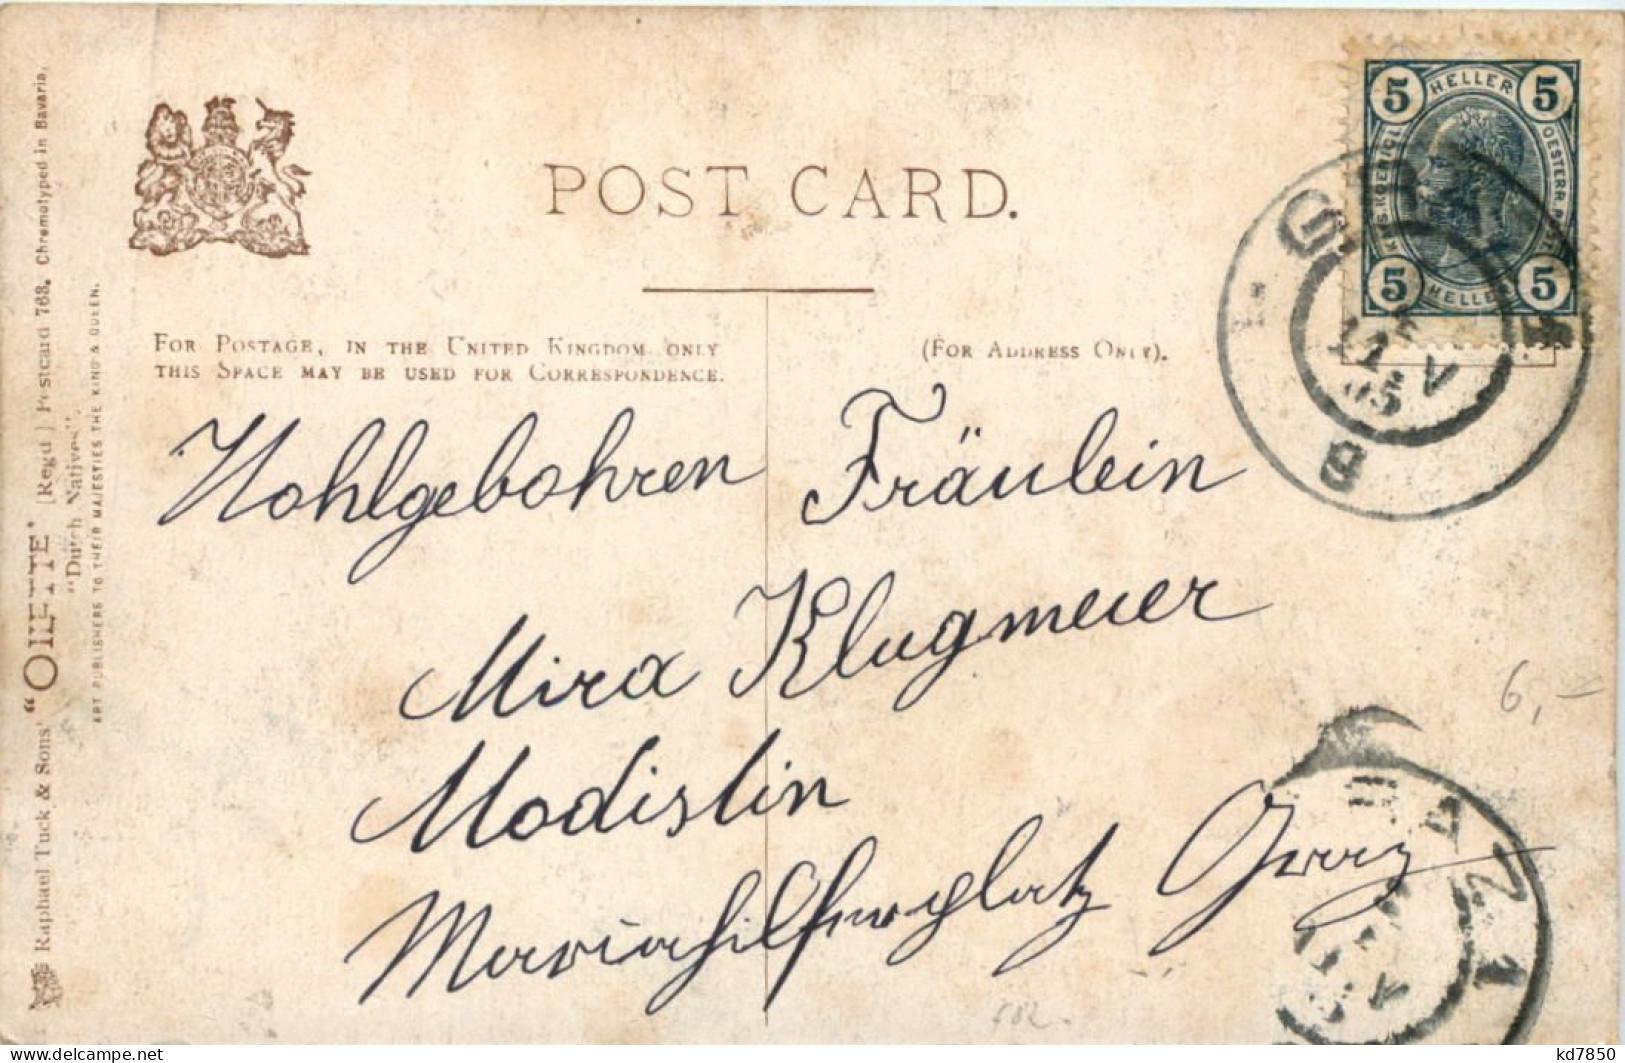 POST CARD.
FOR POSTAGE, IN THE UNITED KINGDOM ONLY
THIS SPACE MAY BE USED FOR CORRESPONDENCE.
(FOR ADDRESS ONLY).
5 HELLER 5
5 HELLER 5
Wohlgebohren Fräulein
Mira Klugmeier
Modistin
Mariahilferplatz Graz
6,-
Raphael Tuck & Sons' "OILETTE" [Regd.] Postcard 763. Chromotyped in Bavaria.
"Dutch Natives".
ART PUBLISHERS TO THEIR MAJESTIES THE KING & QUEEN.
kd7850